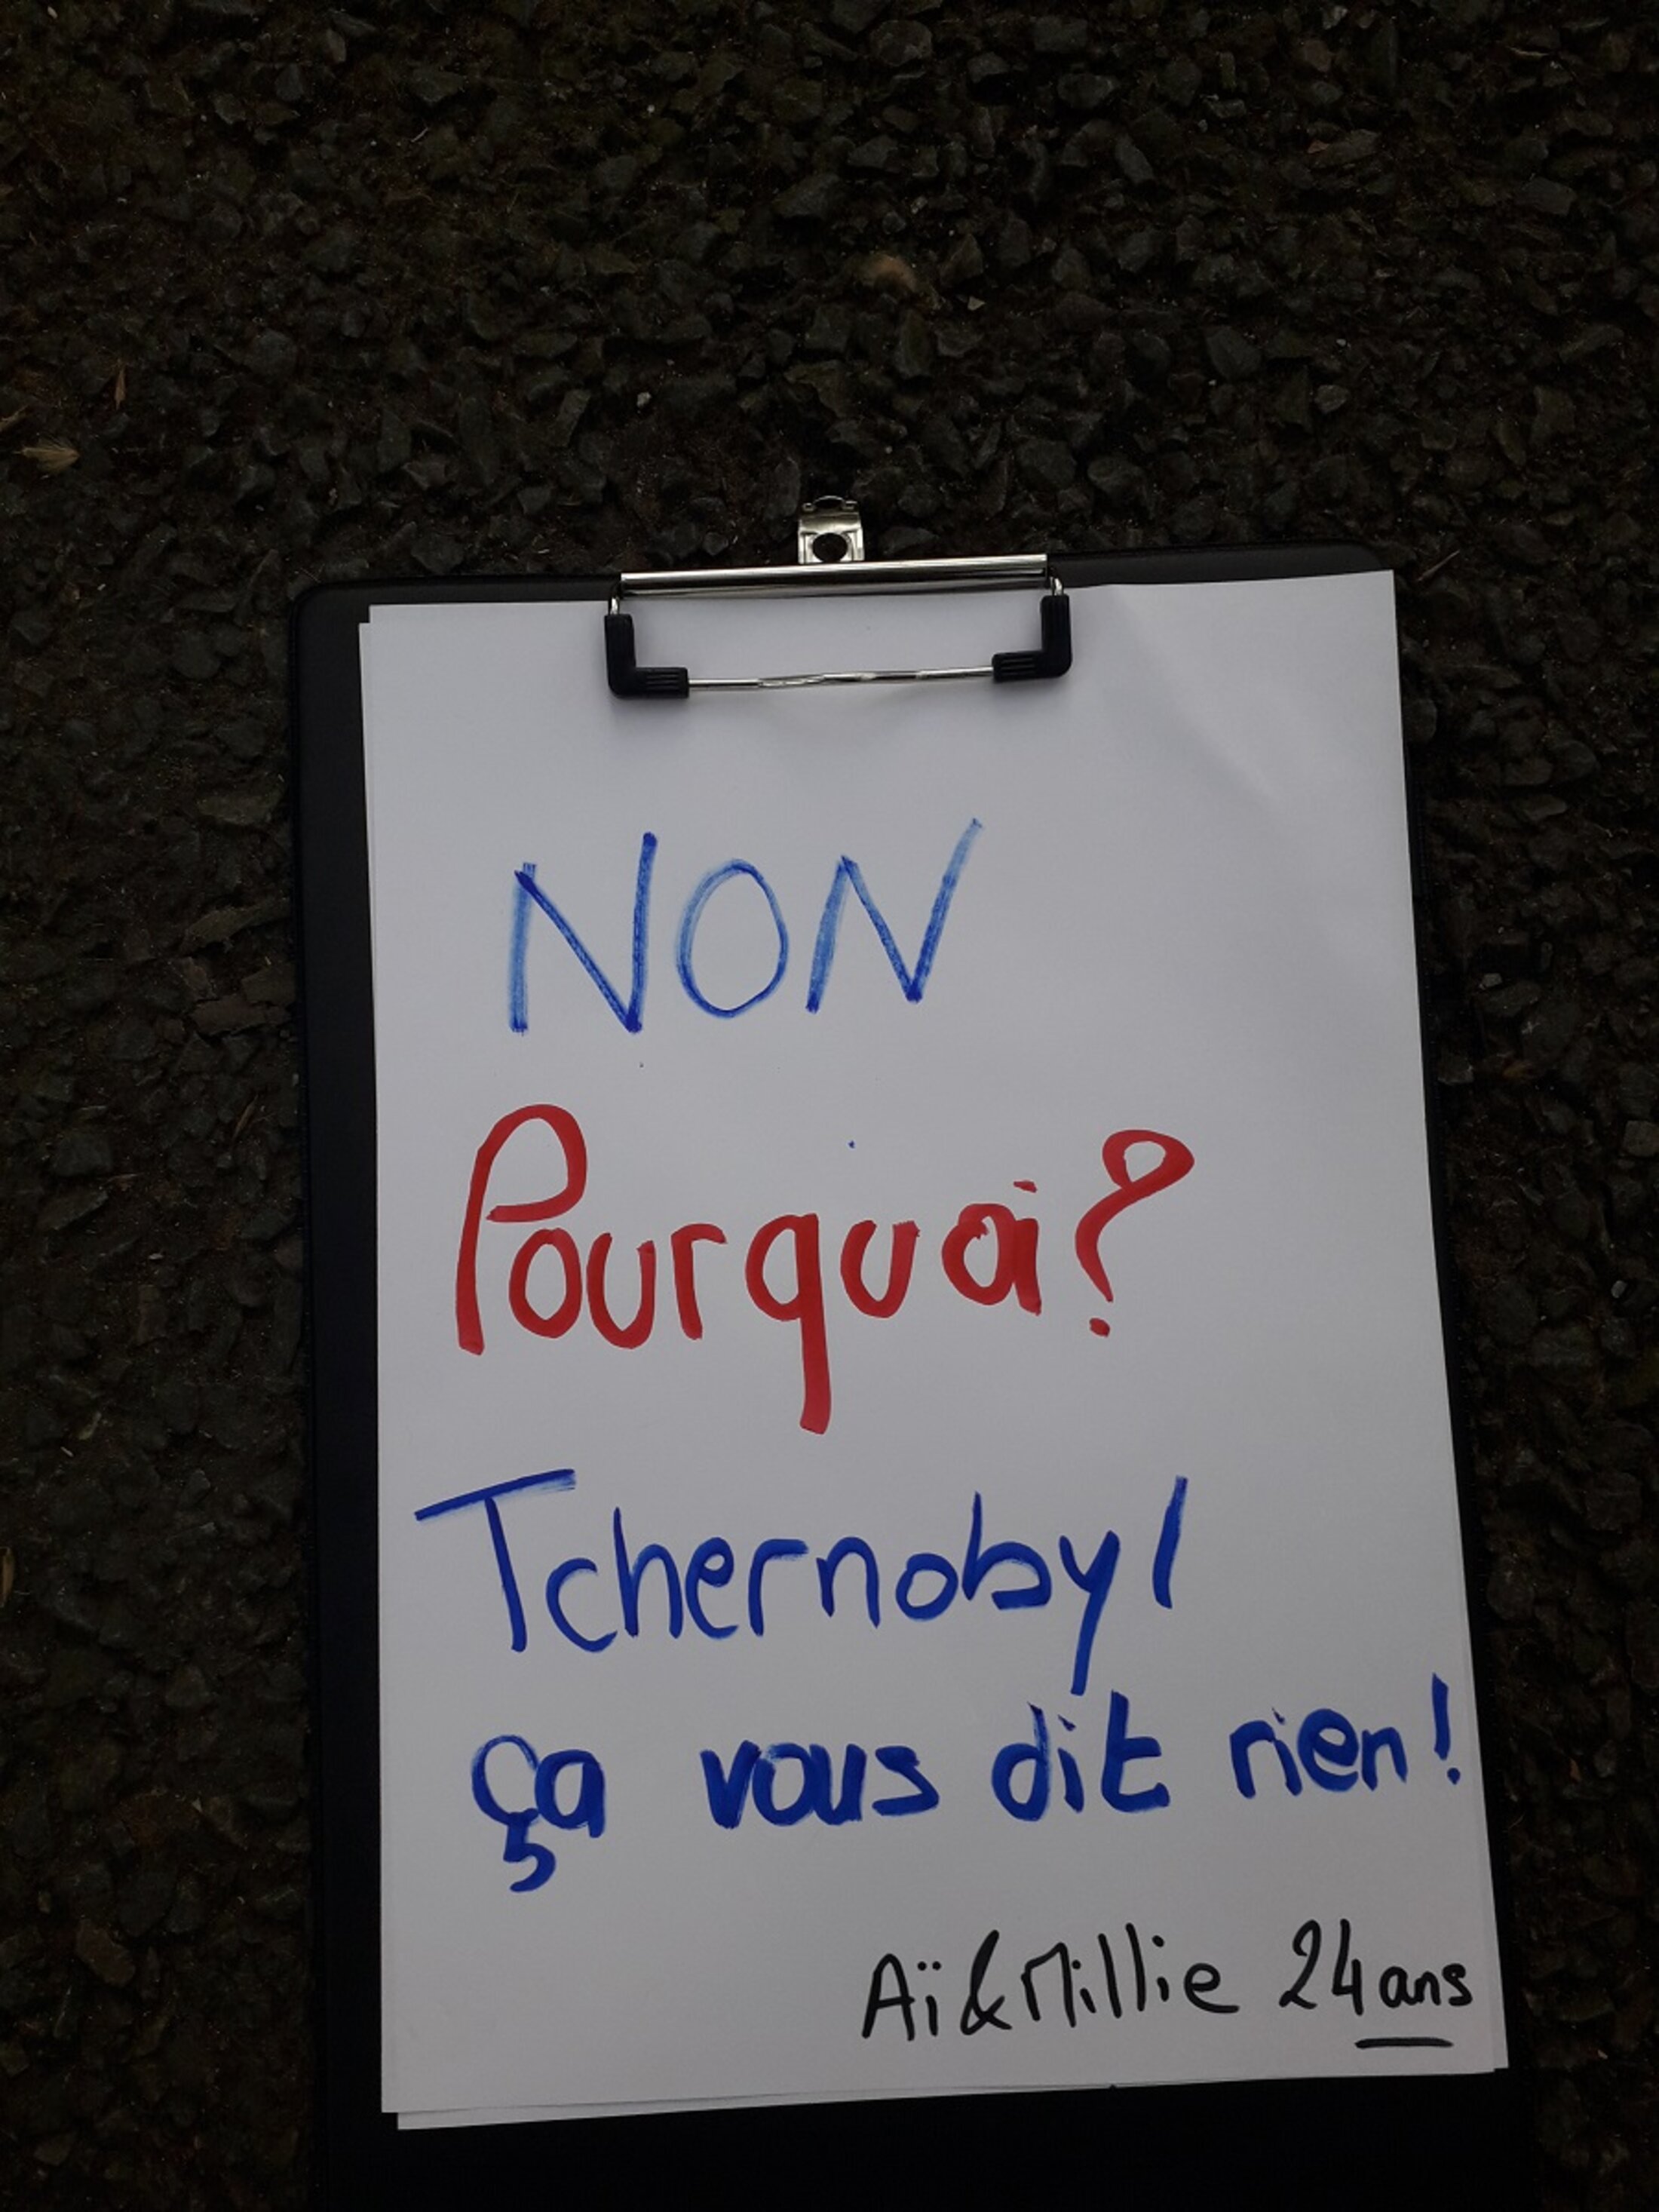 NON
Pourquoi?
Tchernobyl
ça vous dit rien!
Aï & Millie 24 ans